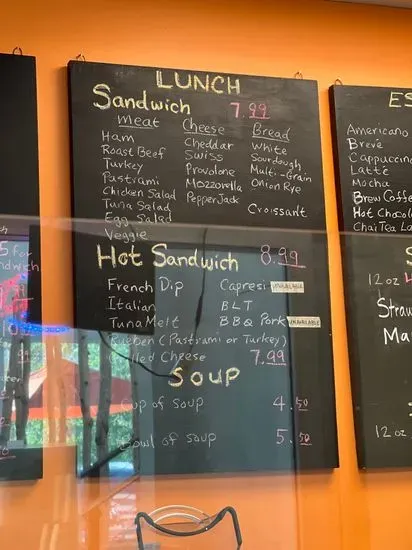 LUNCH
Sandwich 7.99
Meat Cheese Bread
Ham Cheddar White
Roast Beef Swiss Sourdough
Turkey Provolone Multi-Grain
Pastrami Mozzarella Onion Rye
Chicken Salad Pepper Jack
Tuna Salad Croissant
Egg Salad
Veggie
Hot Sandwich 8.99
French Dip Capresi UNAVAILABLE
Italian BLT
Tuna Melt BBQ Pork UNAVAILABLE
Rueben (Pastrami or Turkey)
Grilled Cheese 7.99
SOUP
Cup of soup 4.50
Bowl of soup 5.50
ES
Americano
Breve
Cappuccino
Latte
Mocha
Brew Coffe
Hot Chocola
Chai Tea La
S
12 oz
Straw
Ma
12 oz
5 for
ndwich